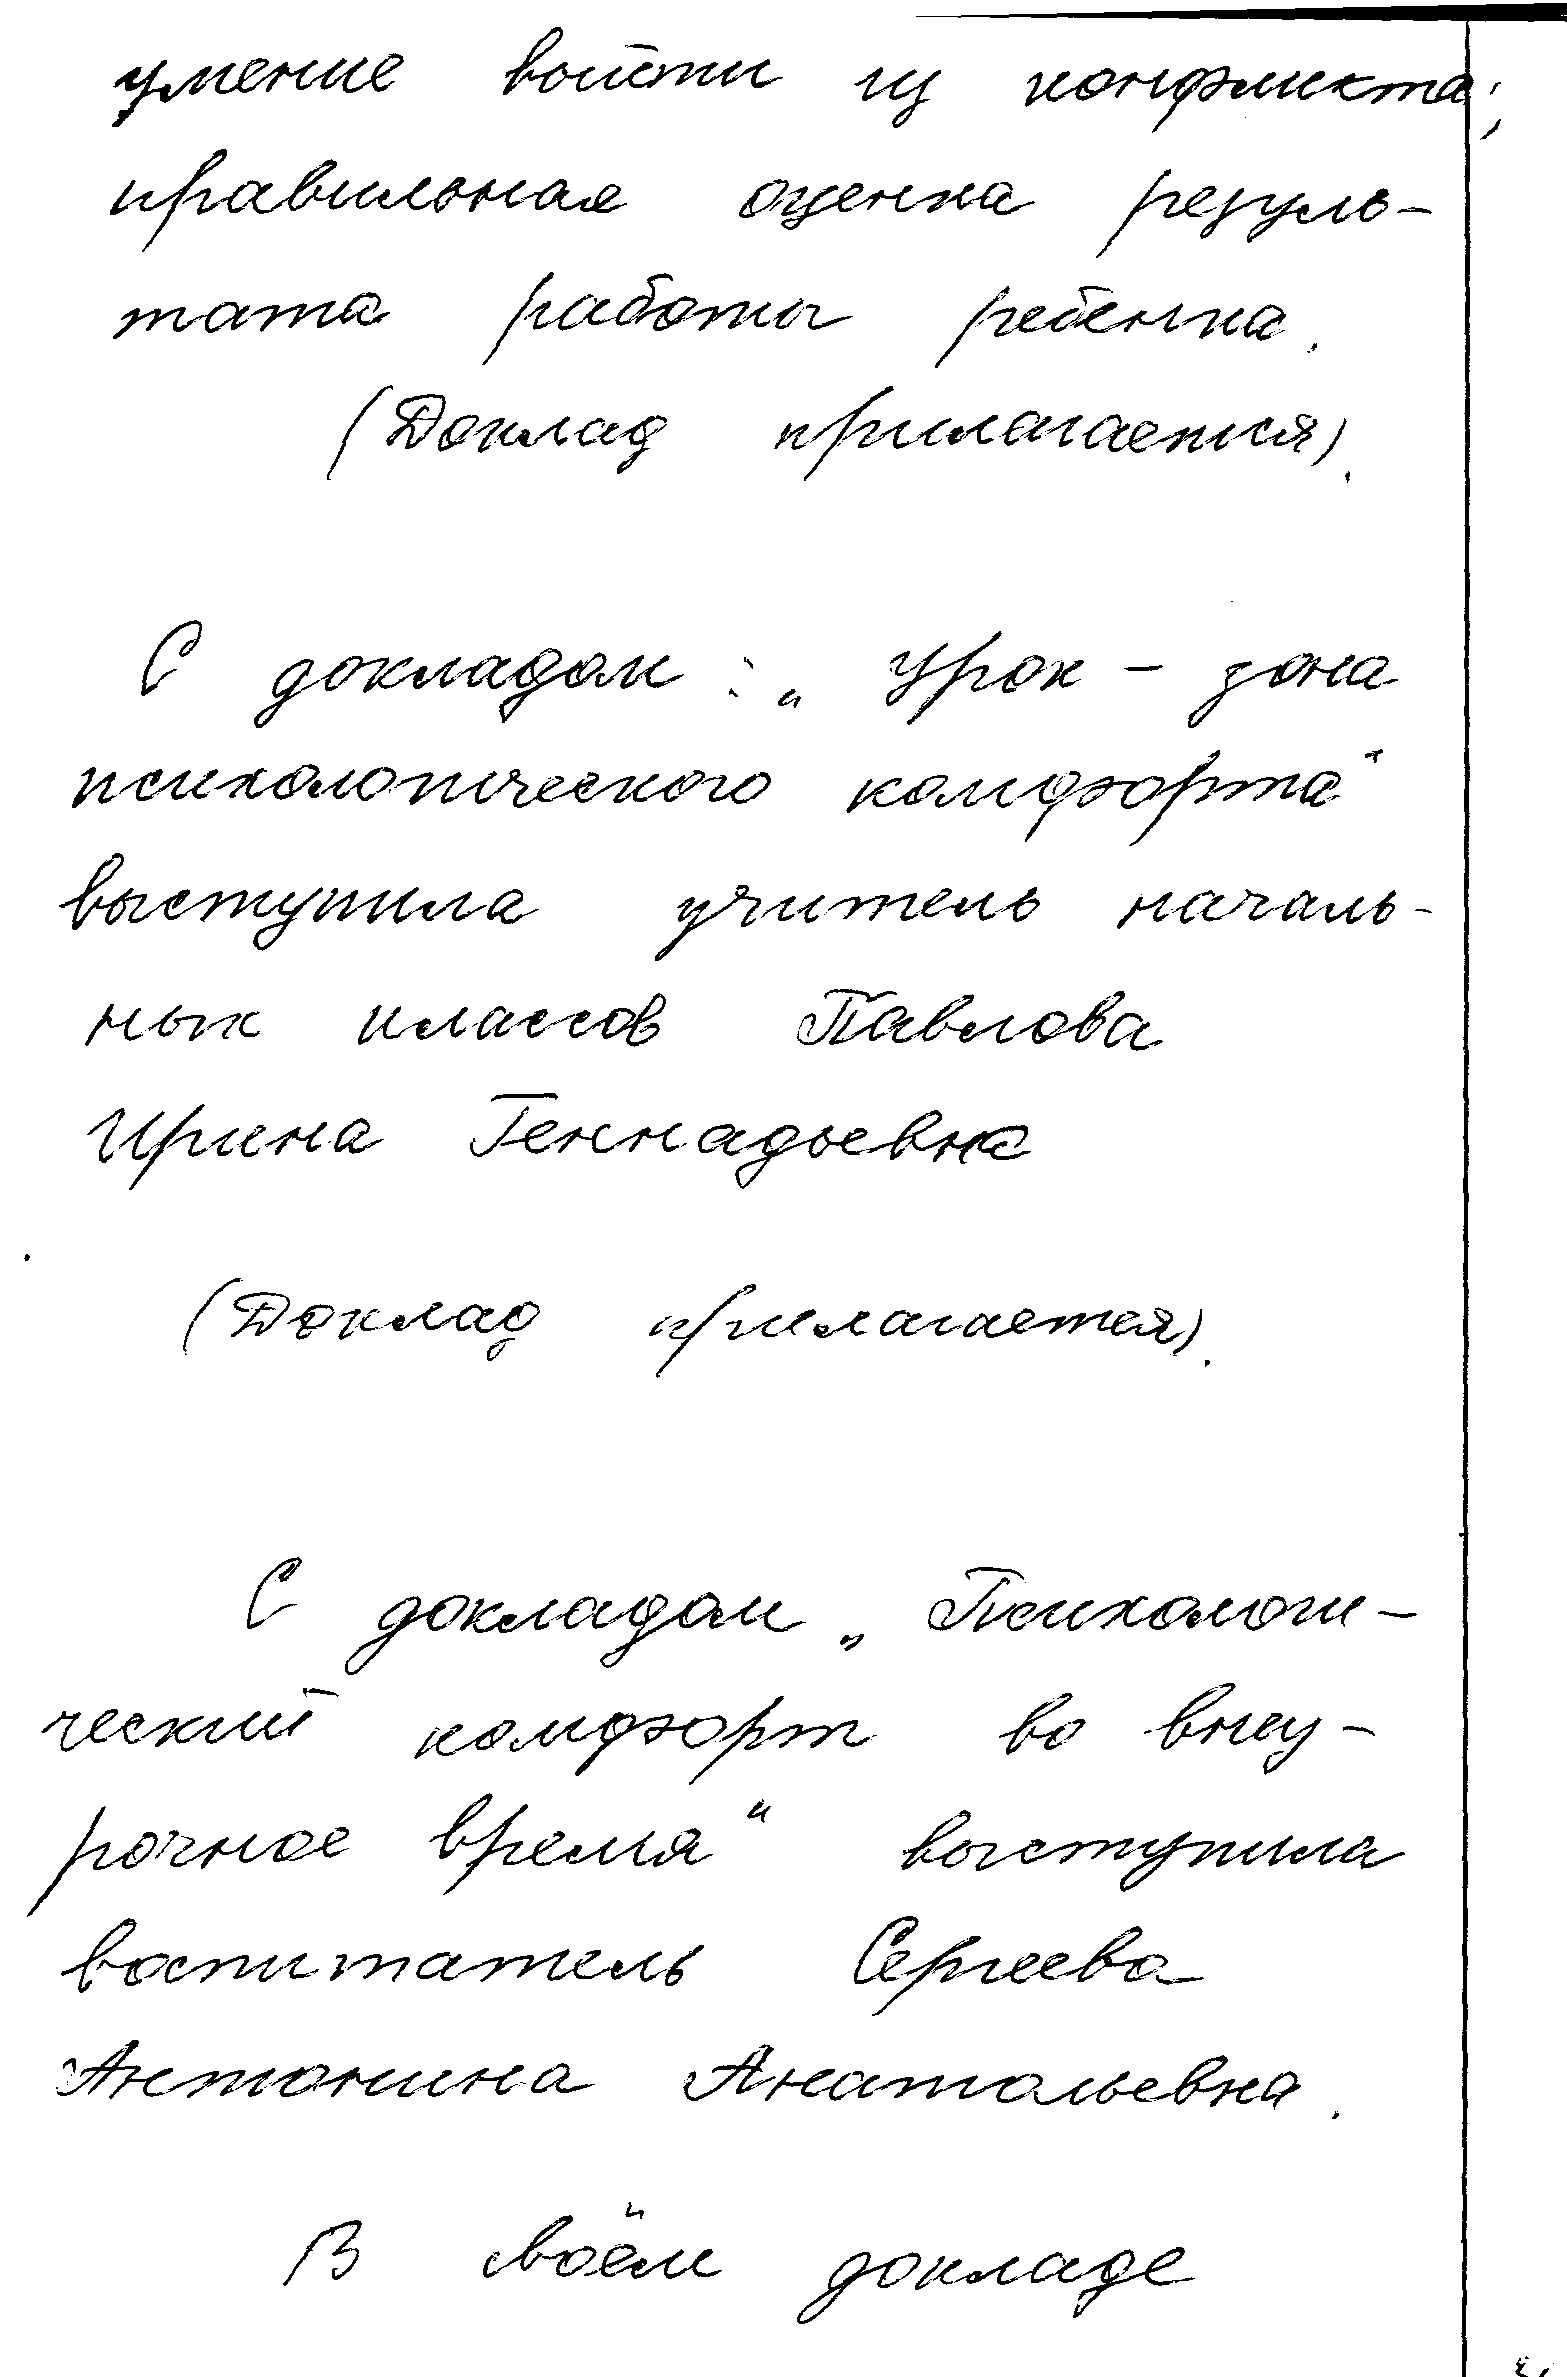 умение войти из конфликта;
правильная оценка резуль-
тата работы ребенка.
(Доклад прилагается).
С докладом: „Урок - зона
психологического комфорта“
выступила учитель началь-
ных классов Павлова
Ирина Геннадьевна
(Доклад прилагается).
С докладом „Психологи-
ческий комфорт во внеу-
рочное время“ выступила
воспитатель Сергеева
Антонина Анатольевна.
В своём докладе